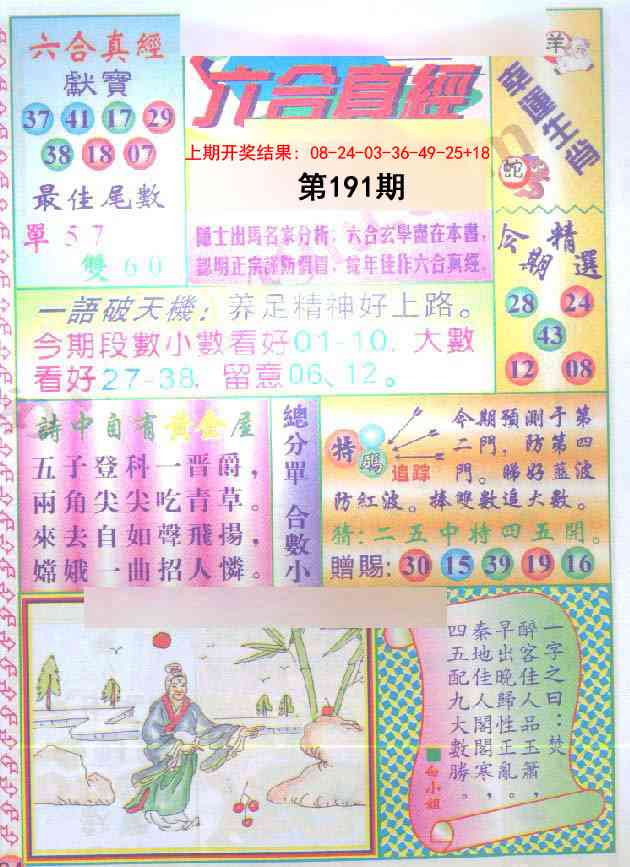 六合真經
獻寶
37 41 17 29
38 18 07
最佳尾數
單 5 7
雙 6 0
六合真經
上期开奖结果：08-24-03-36-49-25+18
第191期
隱士出馬名家分析，六合玄學盡在本書，
認明正宗謹防假冒，龍年佳作六合真經。
羊
幸運生肖
蛇
今期
精選
28 24
43
12 08
一語破天機：养足精神好上路。
今期段數小數看好01-10，大數
看好27-38，留意06、12。
詩中自有黃金屋
五子登科一晋爵，
兩角尖尖吃青草。
來去自如聲飛揚，
嫦娥一曲招人憐。
總分單 合數小
特碼
追踪
今期預測于第
二門，防第四
門。睇好藍波
防紅波。棒雙數追大數。
猜：二五中特四五開。
贈賜：30 15 39 19 16
一字之曰：焚
醉客佳人品玉簫，
早出晚歸性正亂。
秦地佳人閣閣寒，
四五配九大數勝。
白小姐